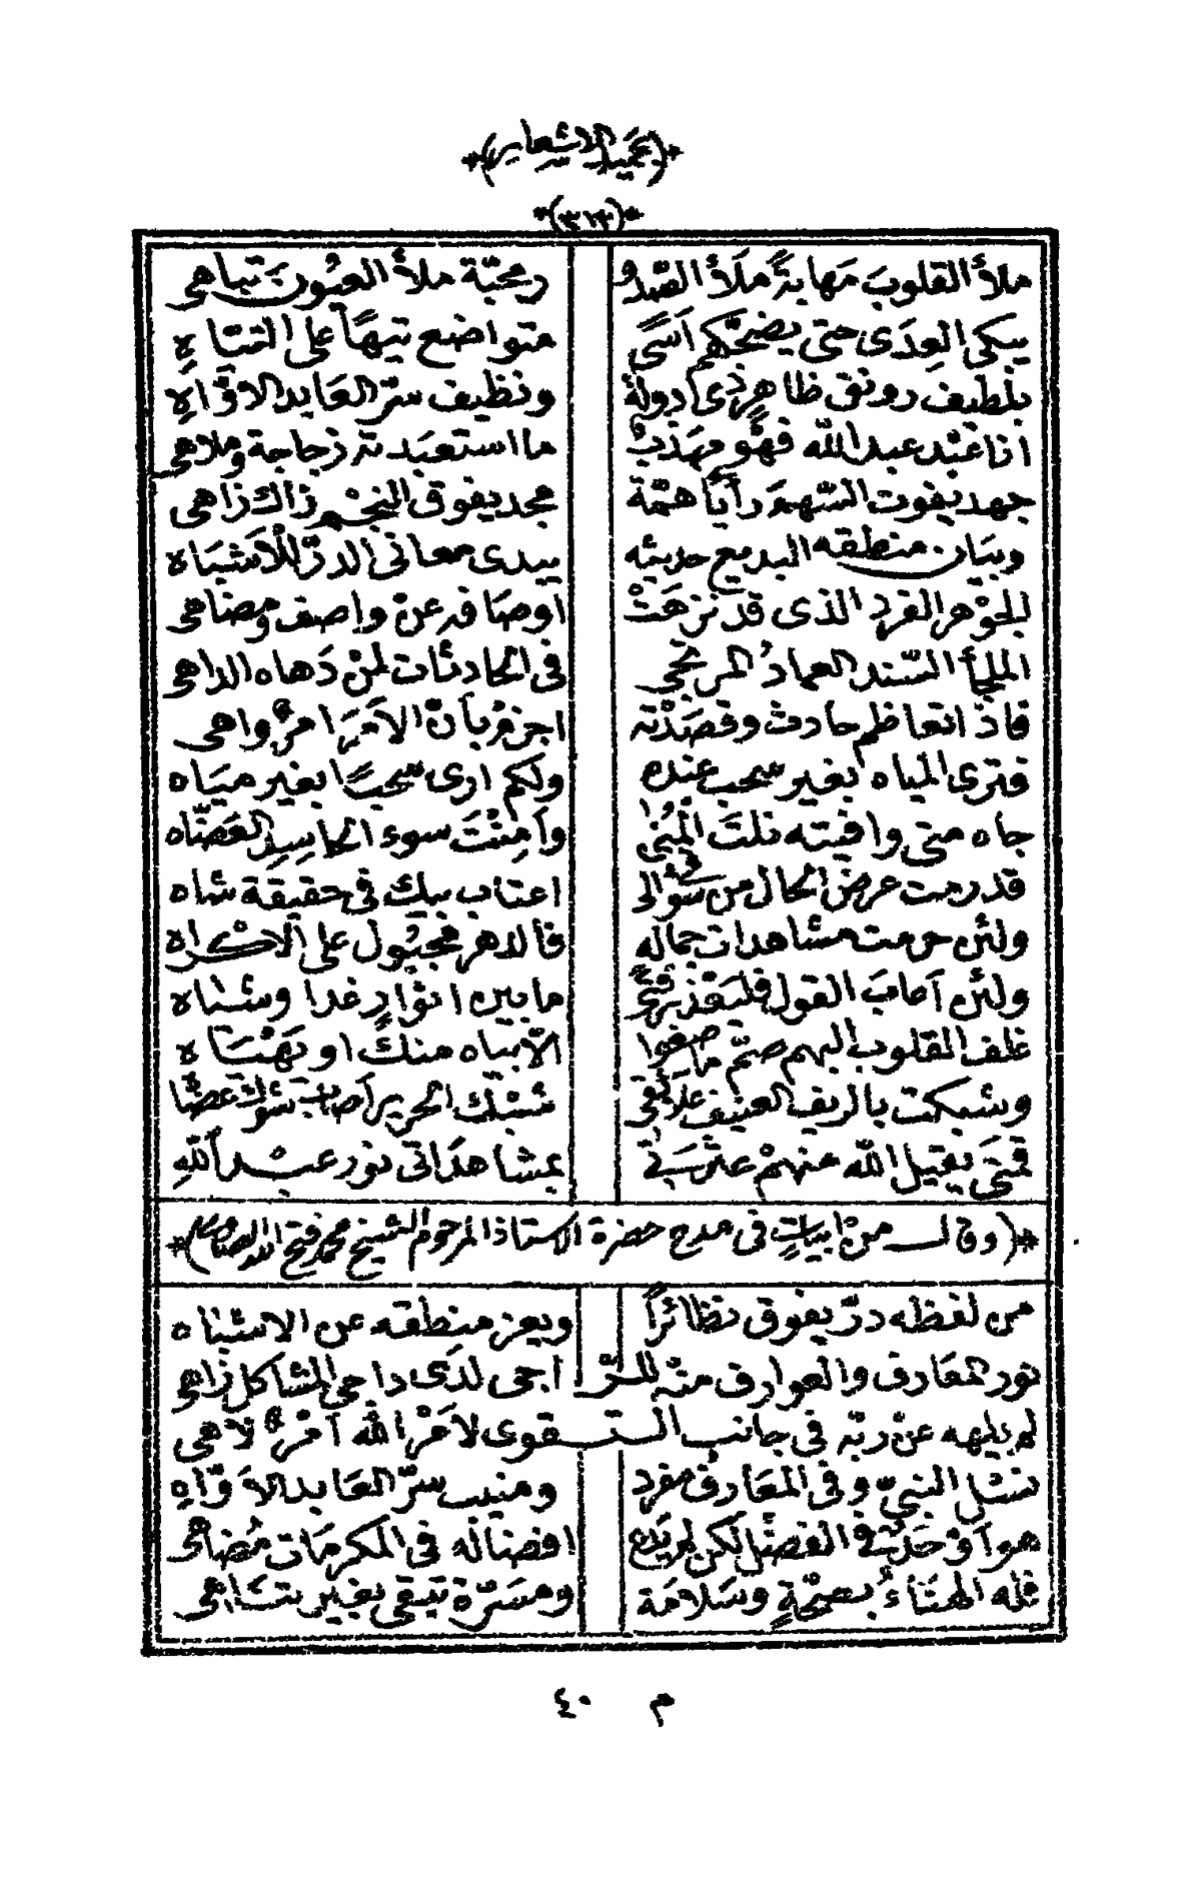 *(حميد الاشعار)*
*(٣١٣)*
ملأ القلوبَ مَهابةً ملَأ الصّدُو رمحبّة ملأ العيُون تباهى
يبكى العِدَى حتى يضحّكهم اَسَى متواضع تيهًا على التيّاهِ
بلطيف رونق ظاهرٍ ذى دولةٍ ونظيف سرّ العَابد الاوّاهِ
انا عَبْد عبد الله فهُو مهَذبٌ ما استعبَدته زجاجة وملاهى
جهد يفوت السّهمَ رأيًا همّة مجد يفوق النجْم ذاك زاهى
وبيَان منطقه البديع حديثه يبدى معانى الدرّ للْاَشبَاه
الجوْهر الفرد الذى قدْ نزهَتْ اوصَافه عنْ واصف ومضاهى
الملجأ السّند العمادُ المرتجى فى الحادثات لمنْ دَهاه الداهى
فاذَ اتعاظم حادث وقصَدْته اجزمْ بأنّ الاَمرَ امرٌ واهى
فترى المياه بغير سحب عنده ولكم ارى سحبًا بغير ميَاه
جاه متى وافيته نلتَ المُنى وأمِنْتَ سوء الحاسِدِ العَضّاه
قد رمت عرض الحال من سؤالى اعتاب بيك فى حقيقة شاه
ولئن حرمت مشاهدات جماله فالدهر مجبُول على الاكْراه
ولئن اَصابَ القول فلتقذ قرتحٌ مابين انوَارٍ غدا وشناه
غلف القلوب البهم صمّ ما صغوا الّا بمياه منكَ او بَهْتَاه
وشبكت بالريف العنيف علايقى شبْك الحرير أصابَ شوك عضّاه
فمتَى يقيل الله منهمْ عثرتى بمشاهدَاتى نور عبْد اَللهِ
*(وقال منْ ابياتٍ فى مدح حضرة الاستاذ المرحوم الشيخ محمد فتح الله)*
من لفظه درّ يفوق نظائرًا ويعز منطقه عن الاشباه
نور المعَارف والعوارف منْه للسّر اجى لدَى داجى المشاكل زاهى
لم يلهه عنْ ربّه فى جانب التقوى لاَمْر الله اَمْرٌ لاهى
نسْل النبىّ وفى المعَارف مفرد ومنيب سرّ العَابد الاَوّاهِ
هو اَوْحَدٌ فى الفضل لكن لم يدع افضاله فى المكرمَات مُضاهى
فله الهنَاءُ بصحّةٍ وسَلامَة ومسَرّة تبقى بغير تنَاهى
م ٤٠